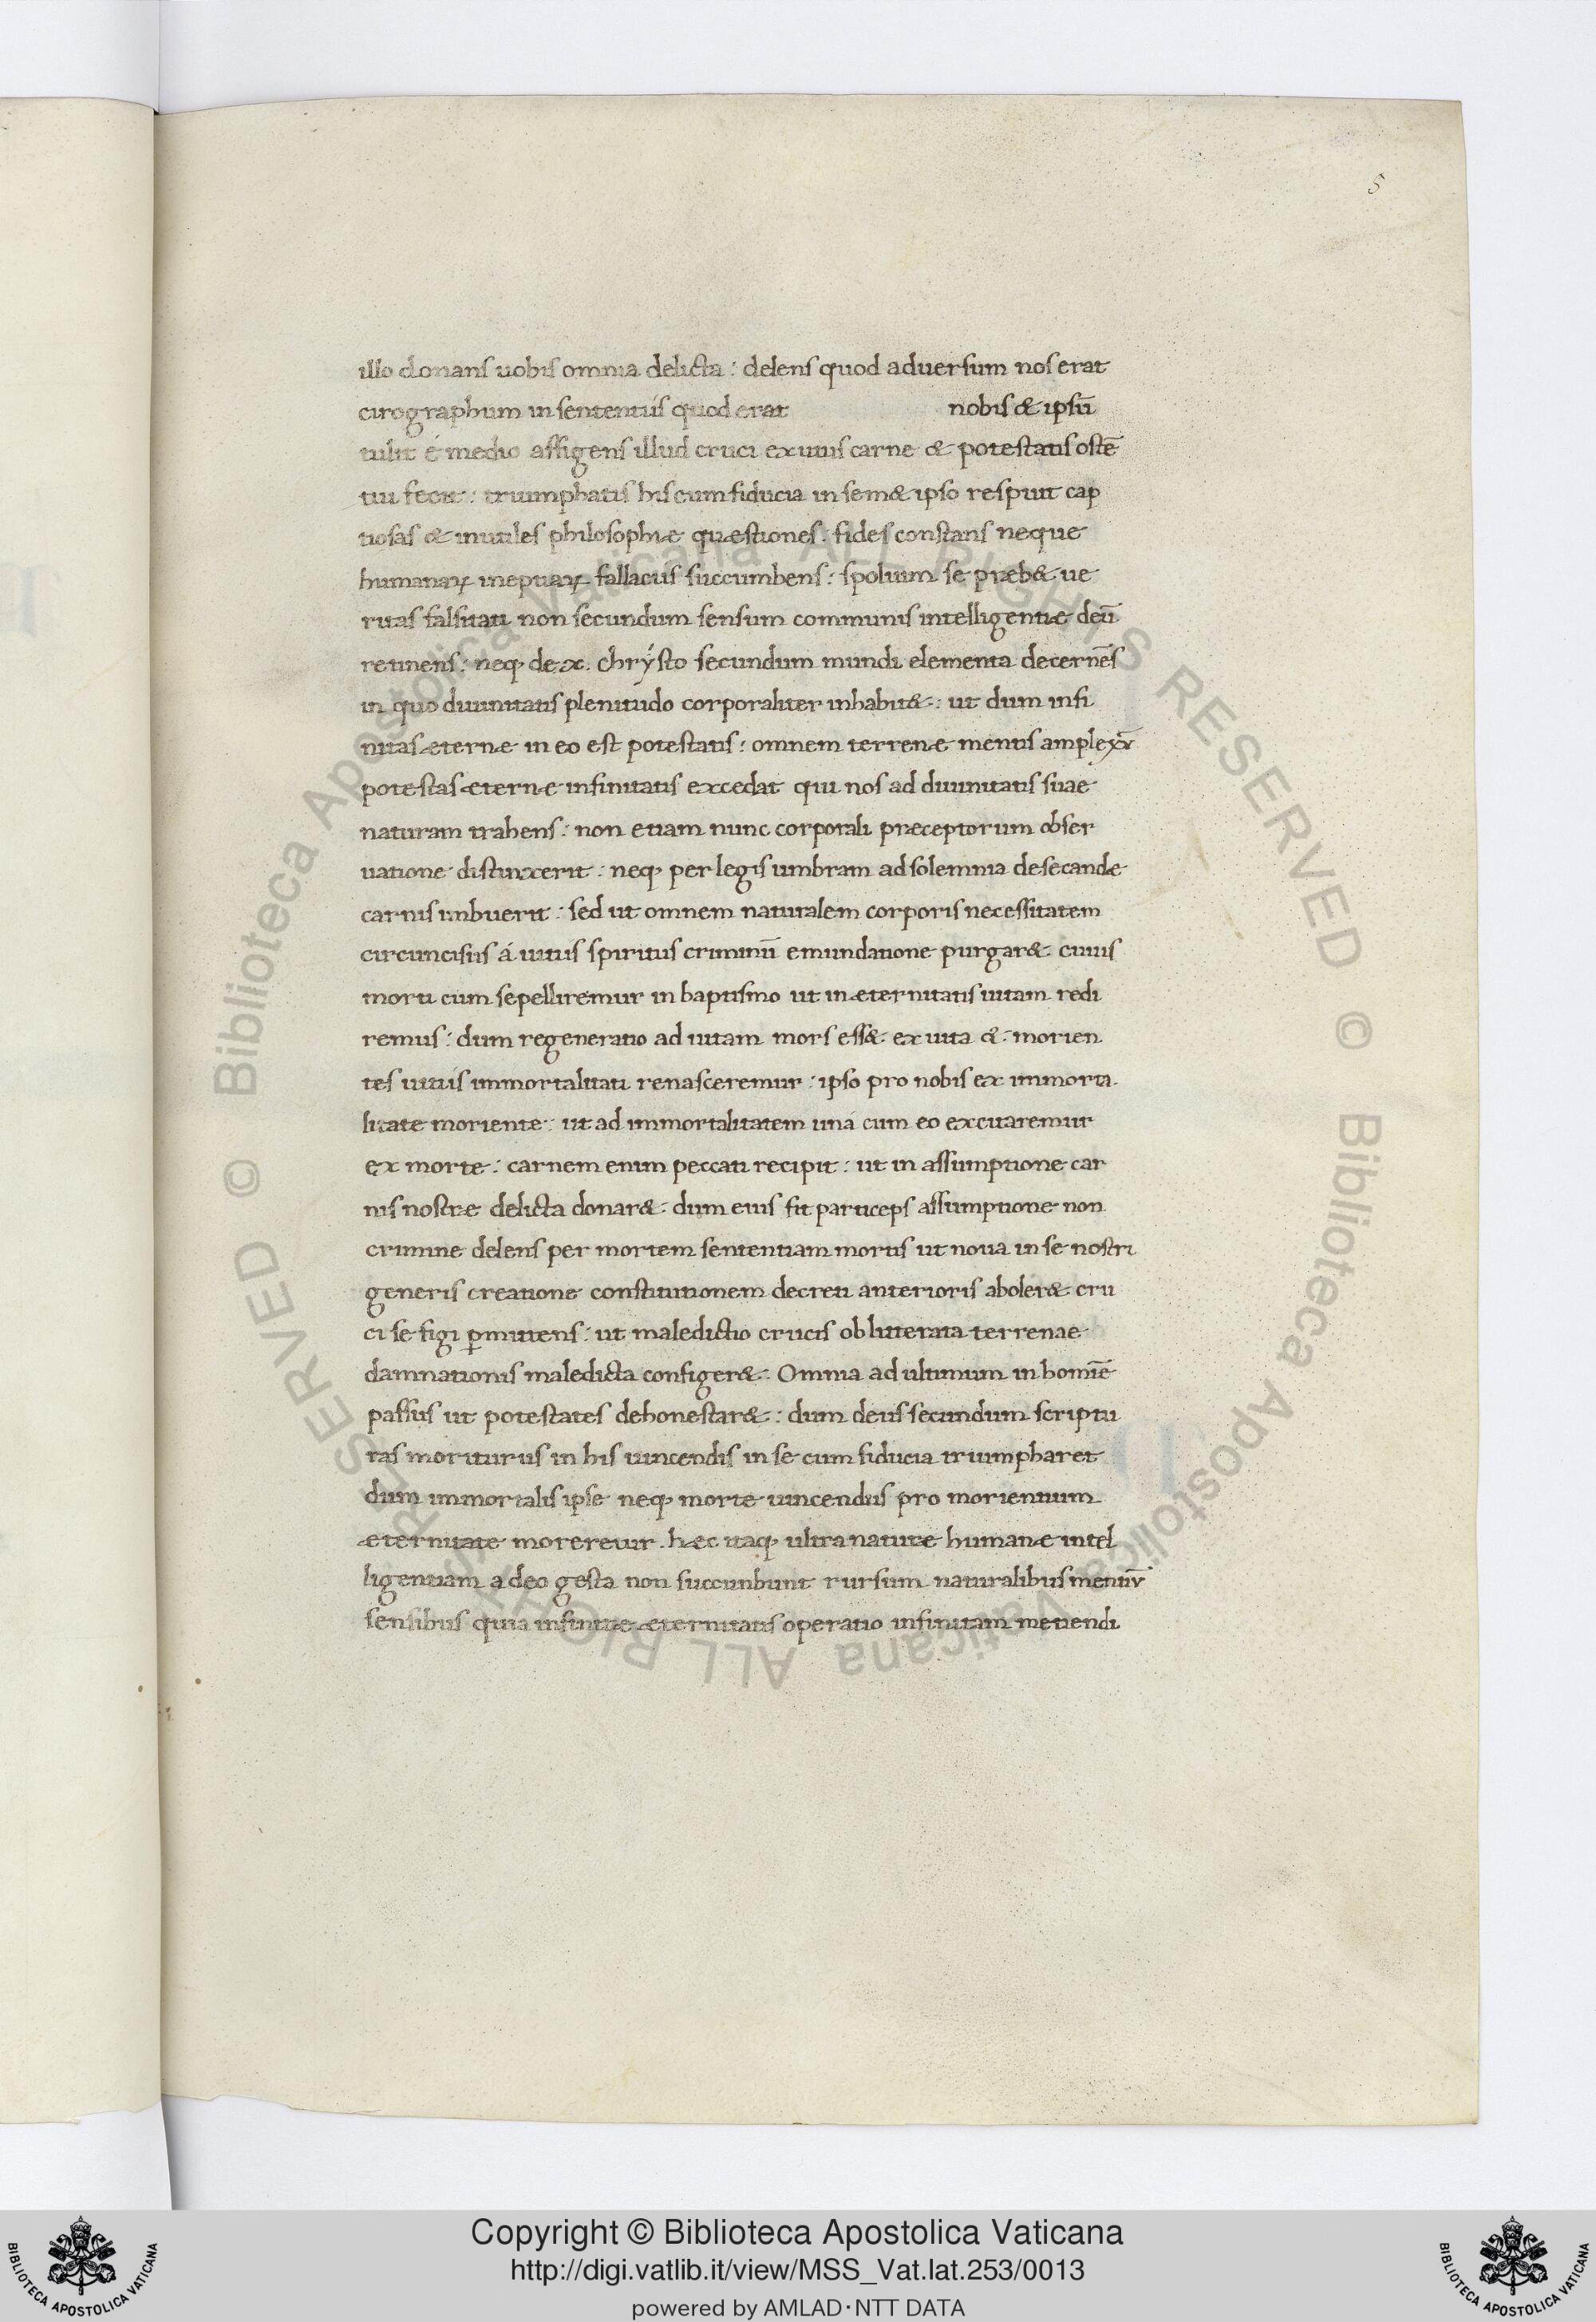 5
illo donans uobis omnia delicta : delens quod aduersum nos erat
cirographum in sententiis quod erat nobis & ipsū
tulit é medio affigens illud cruci exutus carne & potestatis ostē
tui fecit : triumphatis his cum fiducia in sem& ipso respuit cap
tiosas & inutiles philosophiæ quæstiones : fides constans neque
humanaꝝ ineptiaꝝ fallaciis succumbens : spolium se præb& ue
ritas falsitati non secundum sensum communis intelligentiæ deū
retinens : neqꝫ de .x. chrysto secundum mundi elementa decernēs
in quo diuinitatis plenitudo corporaliter inhabit& : ut dum infi
nitas æternæ in eo est potestatis : omnem terrenæ mentis amplexū
potestas æternæ infinitatis excedat qui nos ad diuinitatis suae
naturam trahens : non etiam nunc corporali præceptorum obser
uatione distinxerit : neqꝫ per legis umbram ad solemnia desecandæ
carnis imbuerit : sed ut omnem naturalem corporis necessitatem
circuncisus á uitiis spiritus criminū emundatione purgar& cuius
morti cum sepelliremur in baptismo ut in æternitatis uitam redi
remus : dum regeneratio ad uitam mors ess& ex uita & morien
tes uitiis immortalitati renasceremur : ipso pro nobis ex immorta
litate moriente : ut ad immortalitatem uná cum eo excitaremur
ex morte : carnem enim peccati recipit : ut in assumptione car
nis nostræ delicta donar& dum eius fit particeps assumptione non
crimine delens per mortem sententiam mortis ut noua in se nostri
generis creatione constitutionem decreti anterioris aboler& cru
ci se figi ꝑmittens : ut maledictio crucis oblitterata terrenae
damnationis maledicta configer& : Omnia ad ultimum in homīe
passus ut potestates dehonestar& : dum deus secundum scriptu
ras moriturus in his uincendis in se cum fiducia triumpharet
dum immortalis ipse neqꝫ morte uincendus pro morientium
æternitate moreretur . hæc itaqꝫ ultra naturæ humanæ intel
ligentiam a deo gesta non succunbunt rursum naturalibus mentiū
sensibus quia infinitæ æternitatis operatio infinitam metiendi
© Biblioteca Apostolica Vaticana ALL RIGHTS RESERVED © Biblioteca Apostolica Vaticana ALL RIGHTS RESERVED
Copyright © Biblioteca Apostolica Vaticana
http://digi.vatlib.it/view/MSS_Vat.lat.253/0013
powered by AMLAD·NTT DATA
BIBLIOTECA APOSTOLICA VATICANA
BIBLIOTECA APOSTOLICA VATICANA